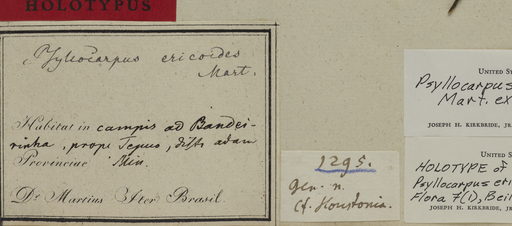 HOLOTYPUS
Psyllocarpus ericoides
Mart.
Habitat in campis ad Bandei-
rinha, prope Tejuco,
Provinciae Min.
Dr. Martius Iter Brasil.
1295.
Gen. n.
Cf. Houstonia.
UNITED ST
Psyllocarpus
Mart. ex
JOSEPH H. KIRKBRIDE, JR
UNITED S
HOLOTYPE of
Psyllocarpus eri
Flora 7(1), Beil
JOSEPH H. KIRKBRIDE, JR